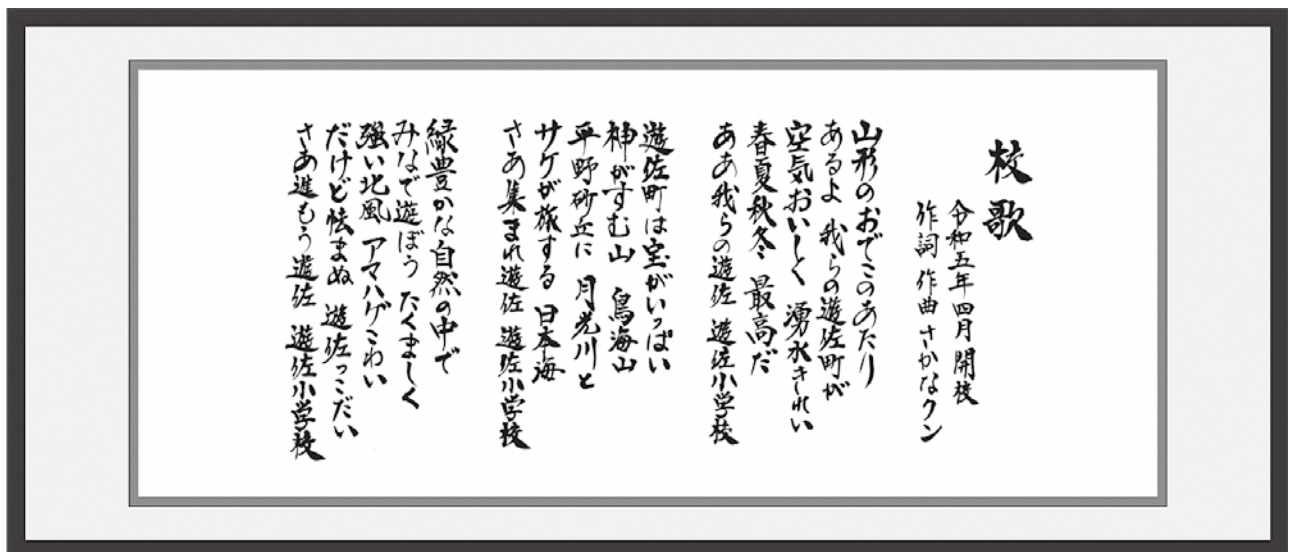 校歌
令和五年四月開校
作詞 作曲 さかなクン
山形のおでこのあたり
あるよ 我らの遊佐町が
空気おいしく 湧水きれい
春夏秋冬 最高だ
ああ我らの遊佐 遊佐小学校
遊佐町は宝がいっぱい
神がすむ山 鳥海山
平野砂丘に 月光川と
サケが旅する 日本海
さあ集まれ遊佐 遊佐小学校
緑豊かな自然の中で
みなで遊ぼう たくましく
強い北風 アマハゲこわい
だけど怯まぬ 遊佐っこだい
さあ進もう遊佐 遊佐小学校